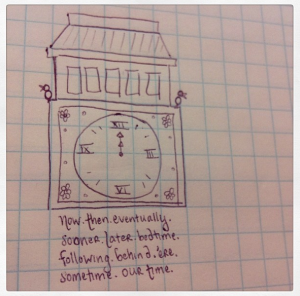 XII
IX
III
VI
now.then.eventually.
sooner.later.bedtime.
following.behind.'ere.
sometime.our time.